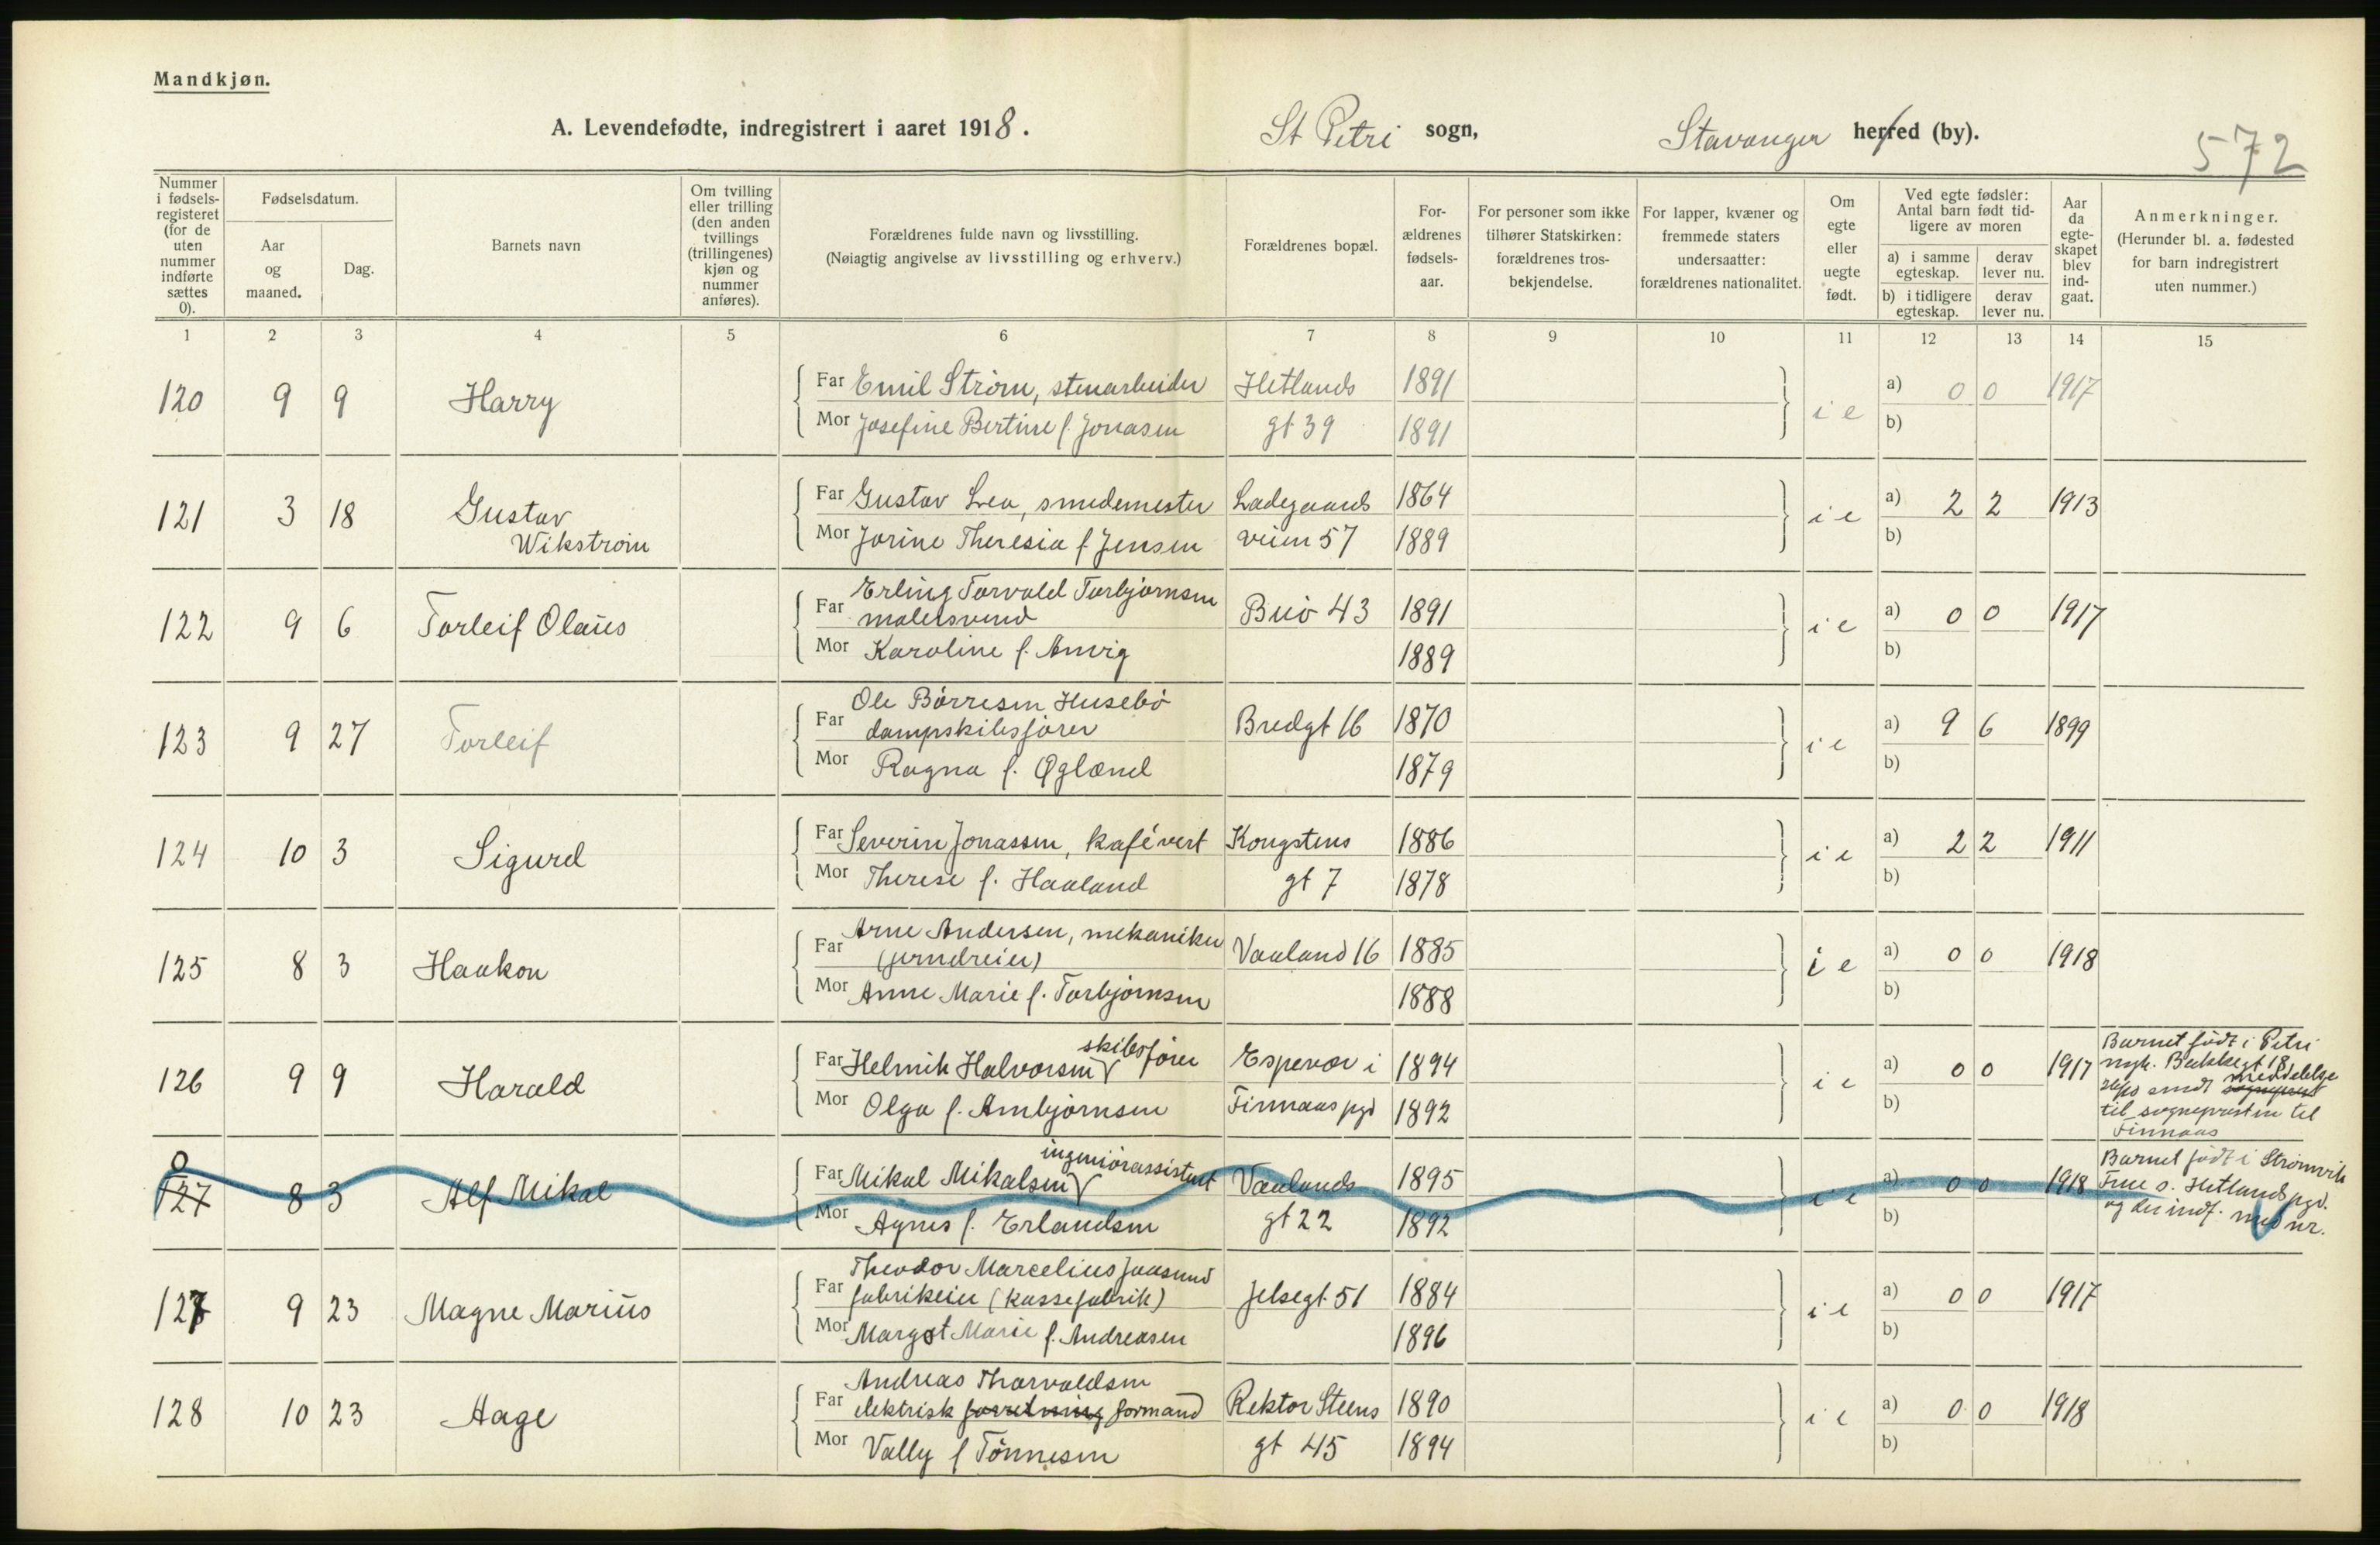 Mandkjøn.
A. Levendefødte, indregistrert i aaret 1918.
St Petri sogn,
Stavanger herred (by).
572
Nummer i fødselsregisteret (for de uten nummer indførte sættes 0).
Fødselsdatum.
Aar og maaned.
Dag.
Barnets navn
Om tvilling eller trilling (den anden tvillings (trillingenes) kjøn og nummer anføres).
Forældrenes fulde navn og livsstilling.
(Nøiagtig angivelse av livsstilling og erhverv.)
Forældrenes bopæl.
Forældrenes fødselsaar.
For personer som ikke tilhører Statskirken: forældrenes trosbekjendelse.
For lapper, kvæner og fremmede staters undersaatter: forældrenes nationalitet.
Om egte eller uegte født.
Ved egte fødsler: Antal barn født tidligere av moren
a) i samme egteskap.
derav lever nu.
b) i tidligere egteskap.
derav lever nu.
Aar da egteskapet blev indgaat.
Anmerkninger.
(Herunder bl. a. fødested for barn indregistrert uten nummer.)
1 2 3 4 5 6 7 8 9 10 11 12 13 14 15
120 9 9 Harry Far Emil Strøm, stenarbeider Hetlands 1891 i e a) 0 0 1917
Mor Josefine Bertine f. Jonasen gt 39 1891 b)
121 3 18 Gustav Far Gustav Lea, smedemester Ladegaards 1864 i e a) 2 2 1913
Wikstrøm Mor Jorine Theresia f Jensen veien 57 1889 b)
Erling Torvald Torbjørnsen
122 9 6 Torleif Olaus Far malersvend Buø 43 1891 i e a) 0 0 1917
Mor Karoline f. Anvig 1889 b)
Ole Børresen Husebø
123 9 27 Torleif Far dampskibsfører Bredgt 16 1870 i e a) 9 6 1899
Mor Ragna f. Øglænd 1879 b)
124 10 3 Sigurd Far Severin Jonassen, kafévert Kongstens 1886 i e a) 2 2 1911
Mor Therese f. Haaland gt 7 1878 b)
Arne Andersen, mekaniker
125 8 3 Haakon Far (jerndreier) Vaaland 16 1885 i e a) 0 0 1918
Mor Anne Marie f. Torbjørnsen 1888 b)
126 9 9 Harald Far Helmik Halvorsen skibsfører Espevær i 1894 i e a) 0 0 1917
Mor Olga f. Ambjørnsen Finnaas pgd 1892 b)
Barnet født i Petri
mgh. Bakkegt 18
26/10 sendt sogneprest meddelelse
til sognepresten til
Finnaas
0
127 8 3 Alf Mikal Far Mikal Mikalsen ingeniørassistent Vaalands 1895 i e a) 0 0 1918
Mor Agnes f. Erlandsen gt 22 1892 b)
Barnet født i Strømvik
Frue s. Hetland pgd.
og der indf. med nr.
Theodor Marcelius Jaasund
127 9 23 Magne Marius Far fabrikeier (kassefabrik) Jelsegt. 51 1884 i e a) 0 0 1917
Mor Margot Marie f. Andreasen 1896 b)
Andreas Thorvaldsen
128 10 23 Aage Far elektrisk forretning formand Rektor Steens 1890 i e a) 0 0 1918
Mor Vally f Tønnesen gt 45 1894 b)